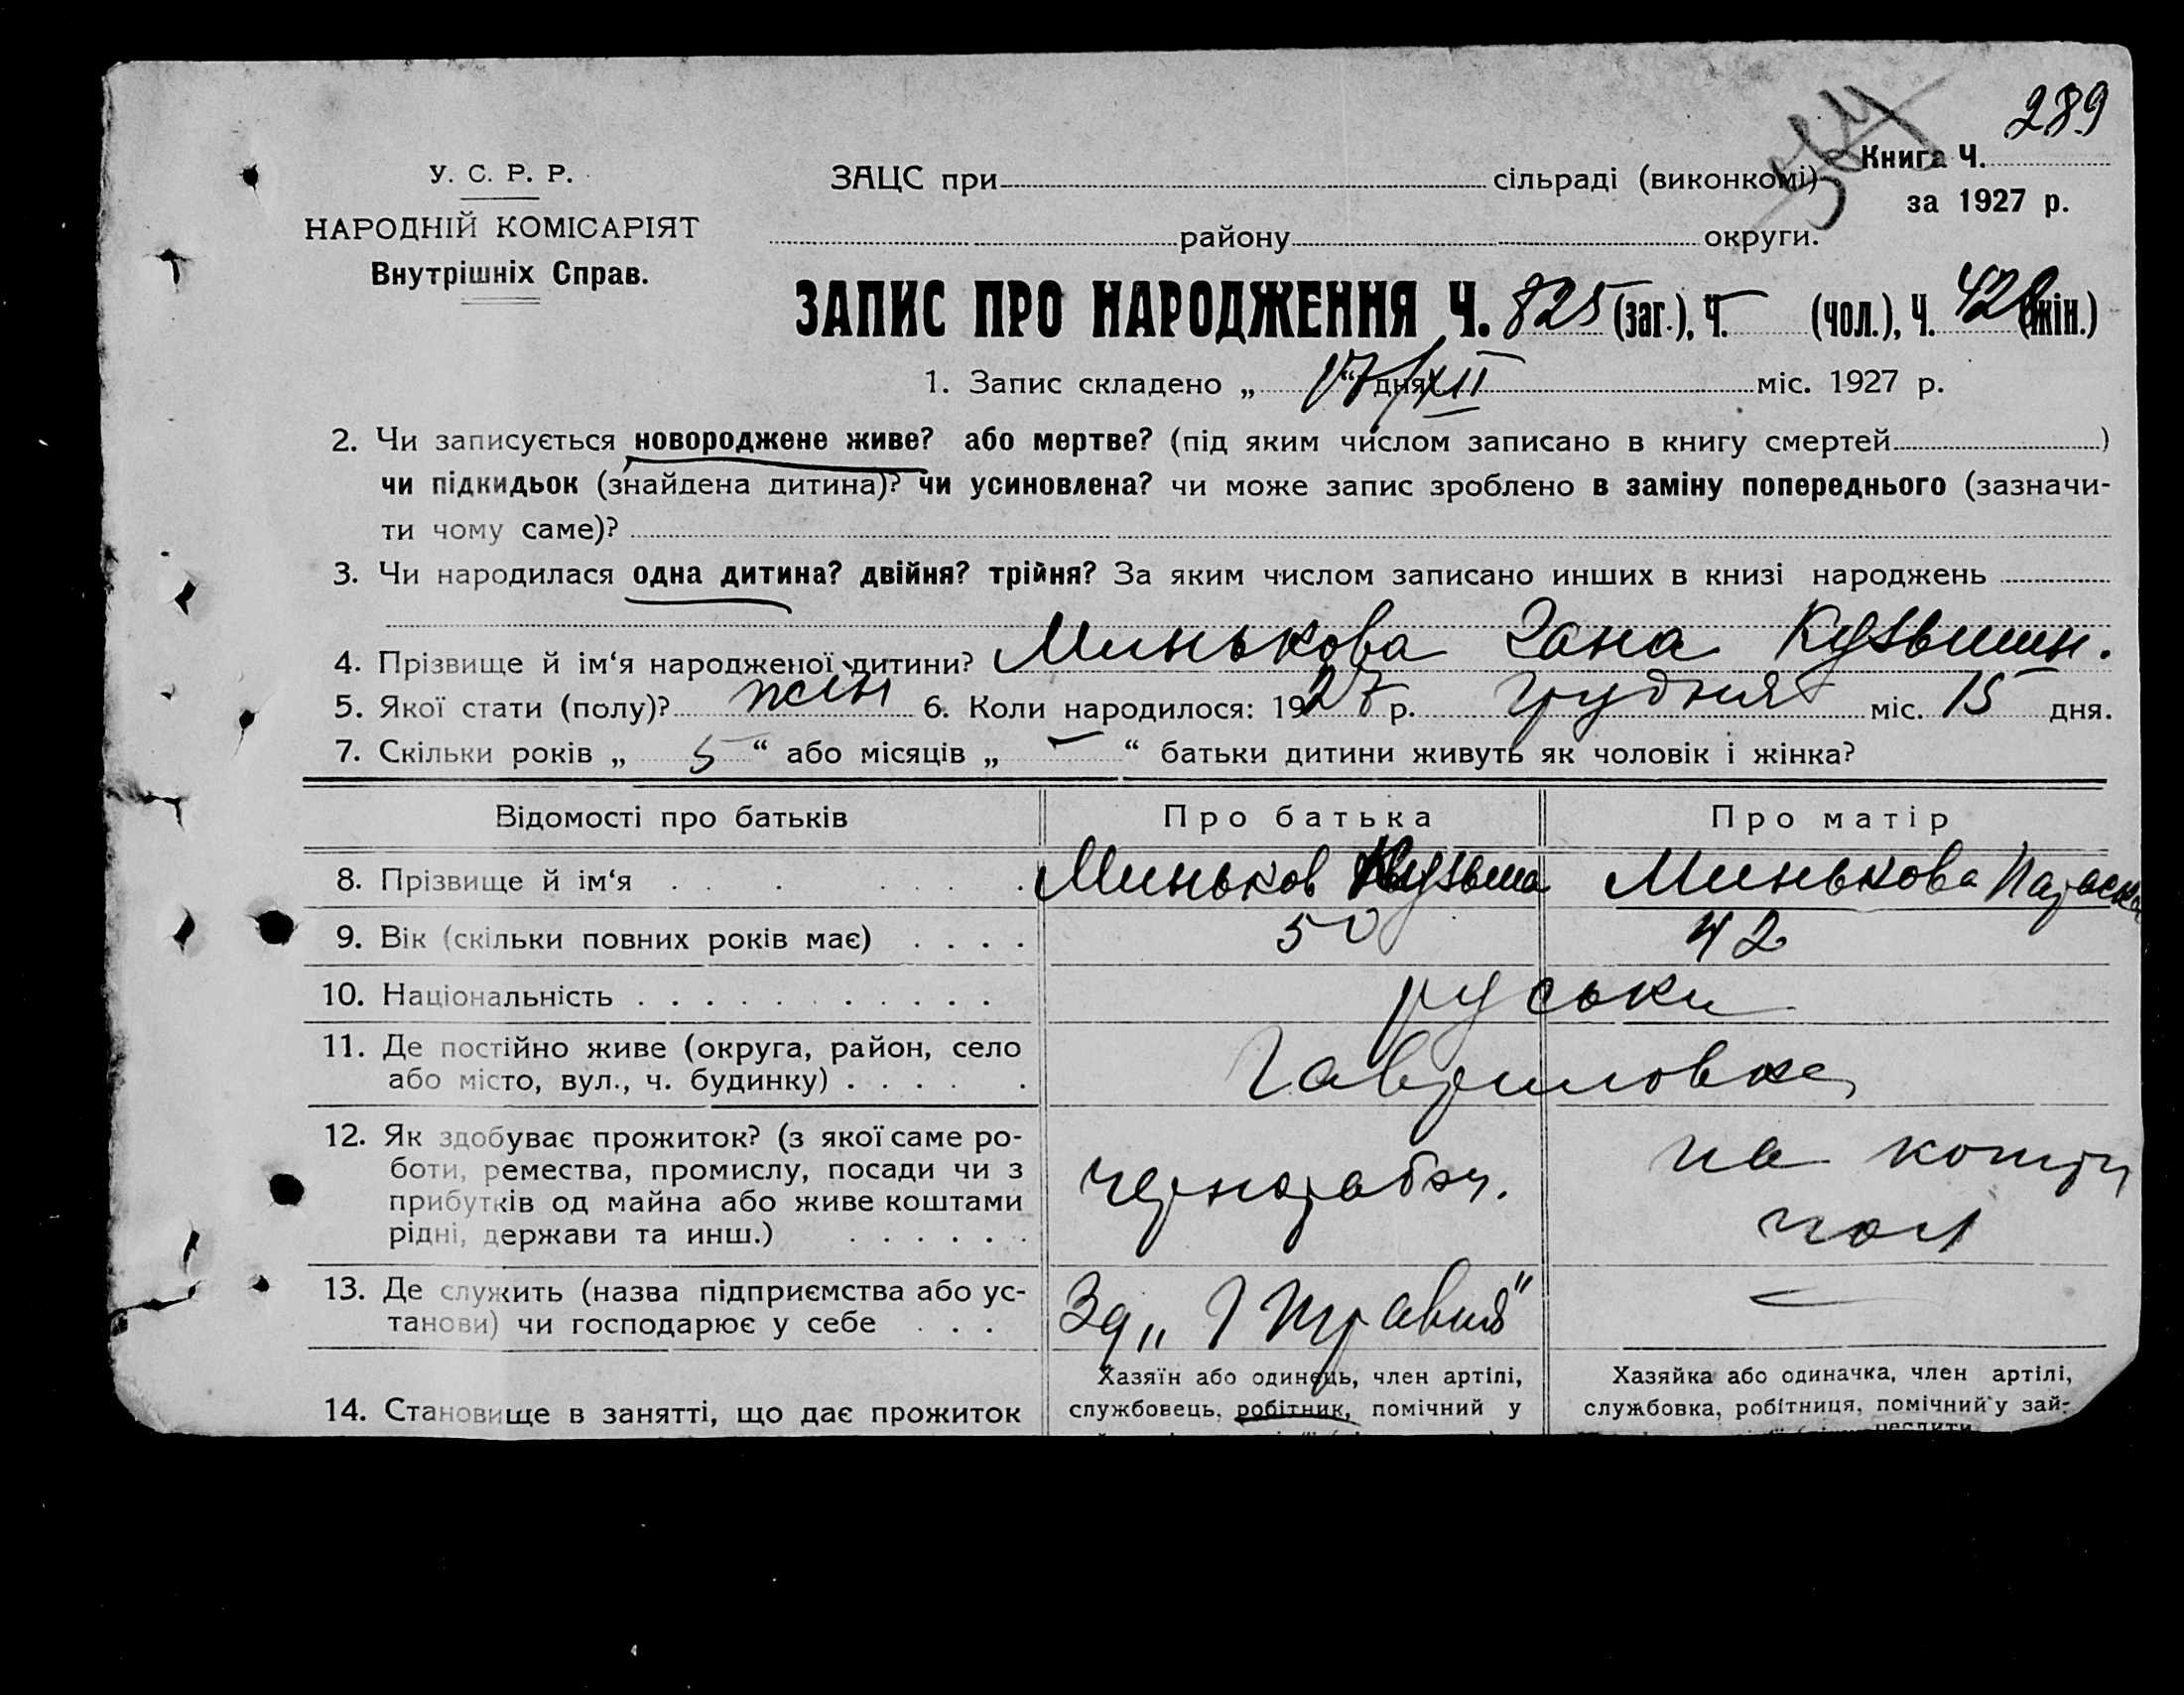 289
У. С. Р. Р.
НАРОДНІЙ КОМІСАРІЯТ
Внутрішніх Справ.
ЗАЦС при сільраді (виконкомі)
Книга Ч.
за 1927 р.
району округи.
ЗАПИС ПРО НАРОДЖЕННЯ Ч. 825 (заг.), Ч. — (чол.), Ч. (жін.)
1. Запис складено „ 17/XII “ дня міс. 1927 р.
2. Чи записується новороджене живе? або мертве? (під яким числом записано в книгу смертей )
чи підкидьок (знайдена дитина)? чи усиновлена? чи може запис зроблено в заміну попереднього (зазначи-
ти чому саме)?
3. Чи народилася одна дитина? двійня? трійня? За яким числом записано инших в книзі народжень
4. Прізвище й ім‘я народженої дитини? Минькова Гана Кузьмин.
5. Якої стати (полу)? жін 6. Коли народилося: 1927 р. грудня міс. 15 дня.
7. Скільки років „ 5 “ або місяців „ — “ батьки дитини живуть як чоловік і жінка?
Відомості про батьків Про батька Про матір
8. Прізвище й ім‘я Миньков Кузьма Минькова Параска
9. Вік (скільки повних років має) 50 42
10. Національність руськи
11. Де постійно живе (округа, район, село
або місто, вул., ч. будинку) Гавриловка
12. Як здобуває прожиток? (з якої саме ро-
боти, ремества, промислу, посади чи з
прибутків од майна або живе коштами
рідні, держави та инш.) чернорабоч. на кошти чол
13. Де служить (назва підприємства або ус-
танови) чи господарює у себе Зд „1 Травня“ —
14. Становище в занятті, що дає прожиток
Хазяїн або одинець, член артілі,
службовець, робітник, помічний у
Хазяйка або одиначка, член артілі,
службовка, робітниця, помічний у зай-